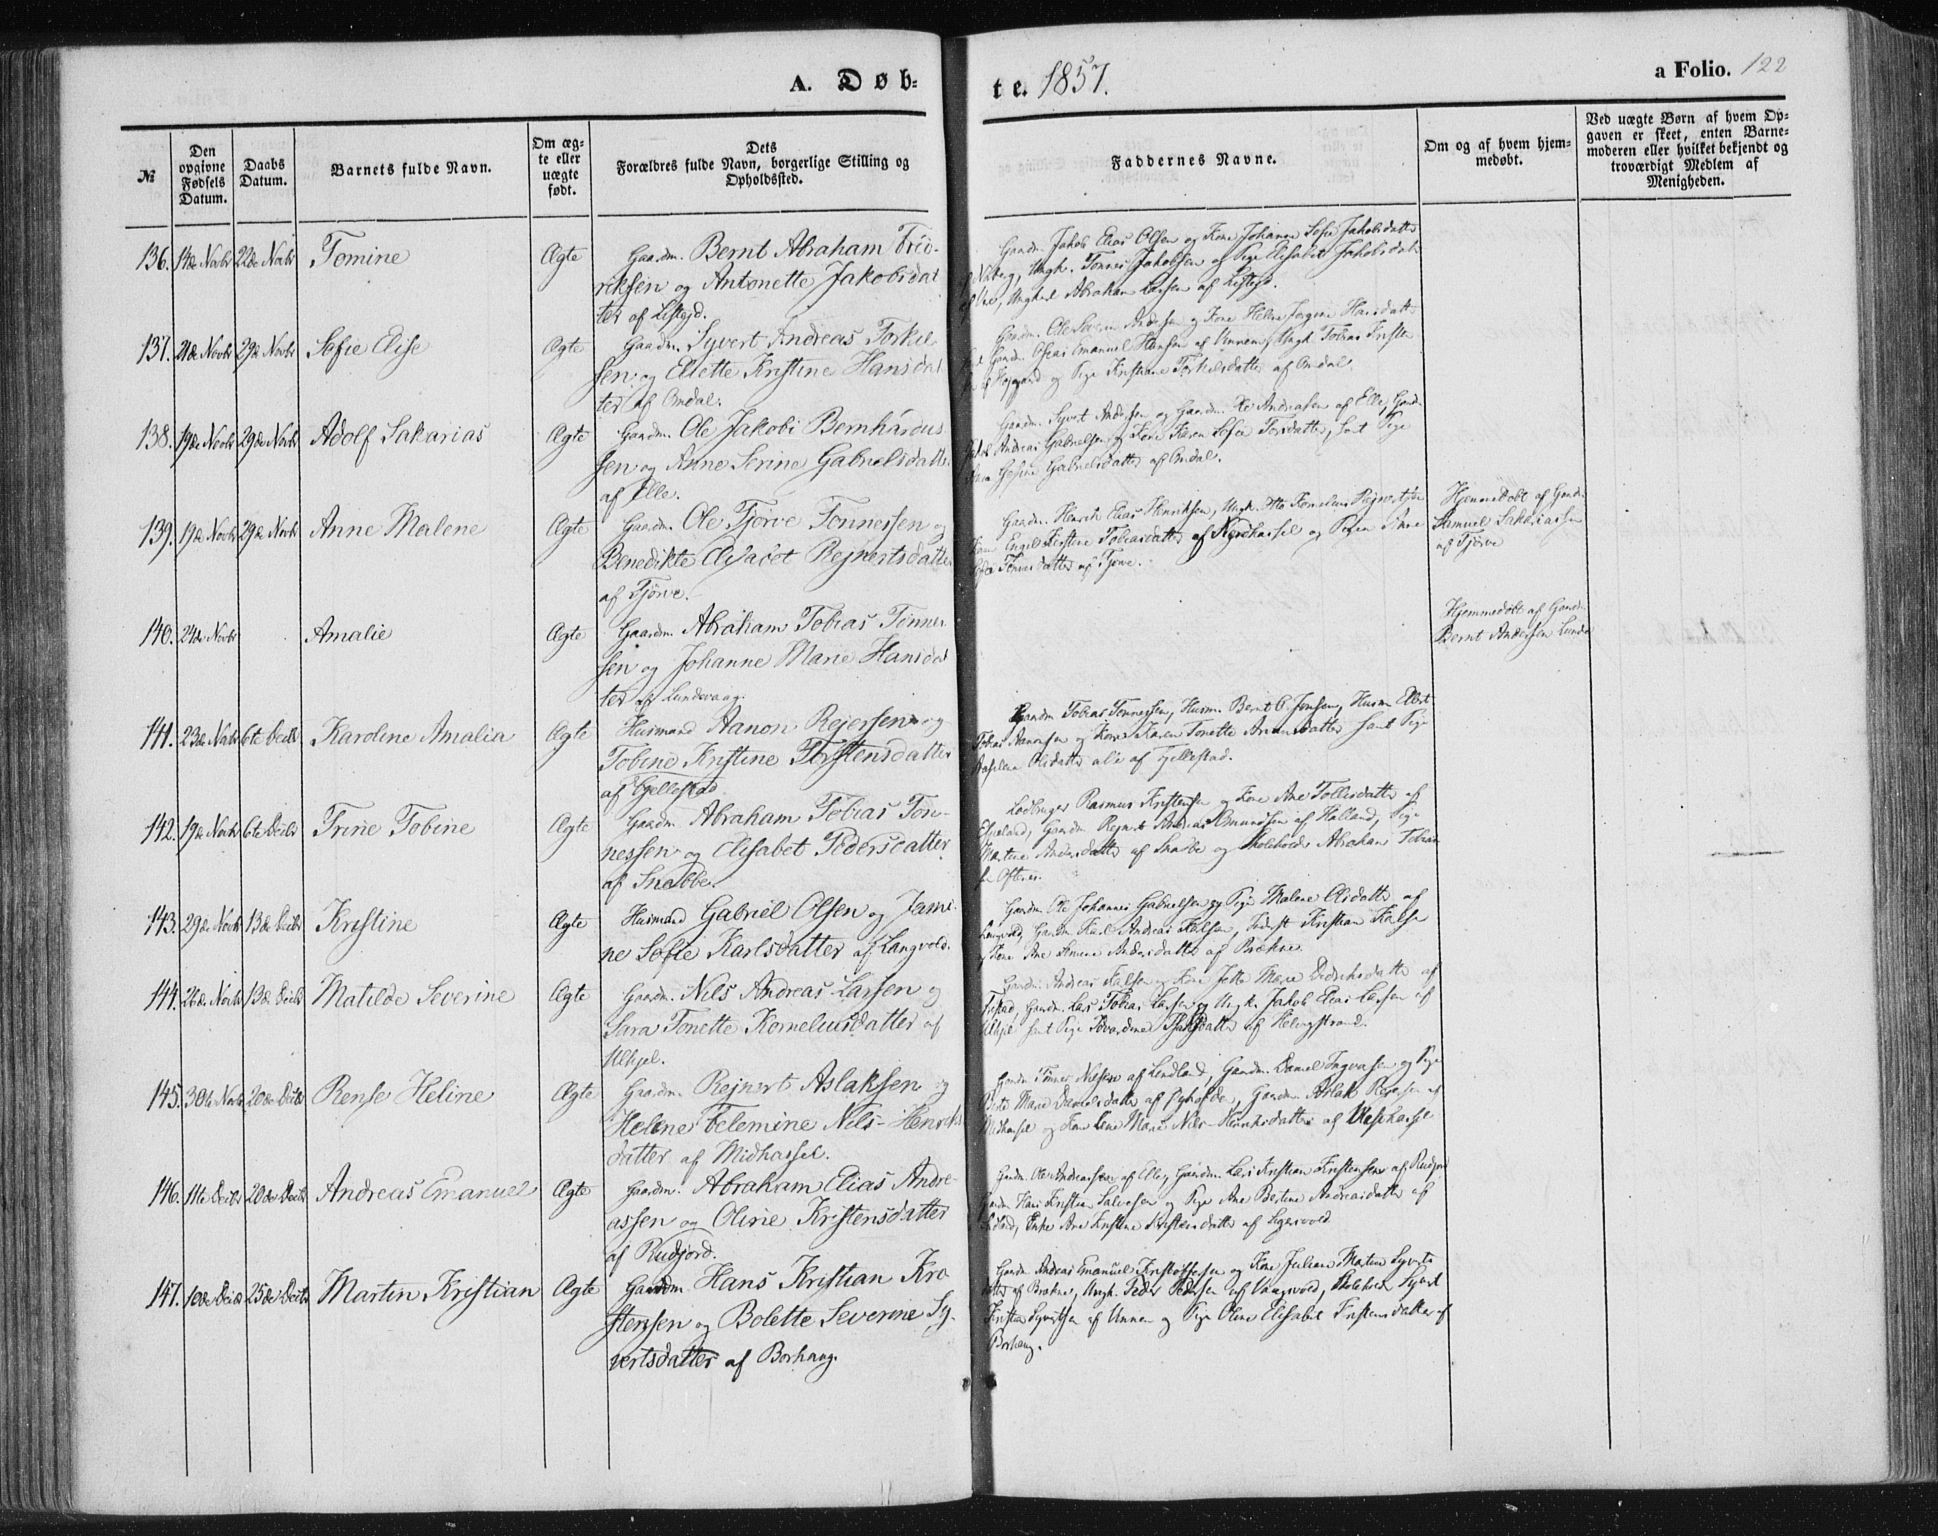 A. Døb=
te. 1857.
a Folio. 122
№
Den opgivne Fødsels Datum.
Daabs Datum.
Barnets fulde Navn.
Om æg-te eller uægte født.
Dets Forældres fulde Navn, borgerlige Stilling og Opholdssted.
Faddernes Navne.
Om og af hvem hjem-medøbt.
Ved uægte Børn af hvem Op-gaven er skeet, enten Barne-moderen eller hvilket bekjendt og troværdigt Medlem af Menigheden.
136. 14de Novbr 22de Novbr Tomine Ægte Gaardm. Bernt Abraham Frid-
riksen og Antonette Jakobsdat
ter af Listejd.
Gaardm. Jakob Elias Olsen og Kone Johanne Sofie Jakobsdatter
Ungk. Tønnes Jakobsen og Pige Elisabet Jakobsdatter
Ungkarl Abraham Larsen af Listejd.
137. 21de Novbr 29de Novbr Sofie Elise Ægte Gaardm. Syvert Andreas Torkel
sen og Eliette Kristine Hansdat
ter af Omdal.
Gaardm. Ole Severin Andersen og Kone Helene Jørgine Hansdatter
Gaardm. Oseas Emanuel Hansen af Unnem, Ungk. Tobias Kristen
af Højgaard og Pige Kristiane Torkelsdatter af Omdal.
138. 19de Novbr 29de Novbr Adolf Sakarias Ægte Gaardm. Ole Jakobi Bernhardus
sen og Anne Serine Gabrielsdatter
af Elle.
Gaardm. Syvert Andersen og Gaardm. Ole Andreasen af Elle, Gaard-
Andreas Gabrielsen og Kone Karen Sofie Torsdatter, samt Pige
Gesine Gabrielsdatter af Omdal.
139. 19de Novbr 29de Novbr Anne Malene Ægte Gaardm. Ole Tjørve Tønnessen og
Benedikte Elisabet Rejnertsdatter
af Tjørve.
Gaardm. Henrik Elias Henriksen, Ungk. Ole Kornelius Rejnertsen
Engel Kirstine Tobiasdatter af Nordhassel og Pigen Anne
Sofie Tønnesdatter af Tjørve.
Hjemmedøbt af Gaardm.
Samuel Sakariassen
af Tjørve
140. 24de Novbr Amalie Ægte Gaardm. Abraham Tobias Tønnes
sen og Johanne Marie Hansdat
ter af Lundevaag.
Hjemmedøbt af Gaardm.
Bernt Andersen Lunde
141. 23de Novbr 6te Decbr Karoline Amalia Ægte Husmand Aanon Rejersen og
Tobine Kristine Torstensdatter
af Gjellestad
Gaardm. Tobias Tønnessen, Husm. Bernt O. Jensen, Husm. Elert
Tobias Aanonsen og Kone Karen Tonette Aanensdatter samt Pige
Olsdatter alle af Gjellestad.
142. 19de Novbr 6te Decbr Trine Tobine Ægte Gaardm. Abraham Tobias Tøn-
nessen og Elisabet Pedersdatter
af Snebbe.
Lodbruger Rasmus Kristensen og Kone Ane Tollisdatter af
Gaardm. Rejnert Andreas Omundsen af Holland, Pige
Martine Andersdatter af Snebbe og Skoleholder Abraham Tobias
143. 29de Novbr 13de Decbr Kristine Ægte Husmand Gabriel Olsen og Jami-
ne Sofie Karlsdatter af Langvold.
Gaardm. Ole Johannes Gabrielsen og Pige Malene Olsdatter af
Langvold, Gaardm. Karl Andreas Kalsen, Føderst Kristian Kalsen
og Kone Ane Andersdatter af Brekne.
144. 26de Novbr 13de Decbr Matilde Severine Ægte Gaardm. Nils Andreas Larsen og
Sara Tonette Korneliusdatter af
Ulhjel.
Gaardm. Andreas Kalsen og Kone Jette Marie Didriksdatter af
Gaardm. Lars Tobias Larsen og Ungk. Jakob Elias Larsen af
Ulhjel samt Pige af Helvigstrand.
145. 30te Novbr 20de Decbr Rense Heline Ægte Gaardm. Rejnert Aslaksen og
Helene Telemine Nils-Henriks
datter af Midhassel.
Gaardm. Tønnes Nilsen af Lindland, Gaardm. Daniel Ingvaldsen og Pige
Berte Marie Danielsdatter af Gaardm. Aslak Rejersen af
Midhassel og Kone Lene Marie Nils-Henriksdatter af Vesthassel
146. 11te Decbr 20de Decbr Andreas Emanuel Ægte Gaardm. Abraham Elias Andre-
assen og Oline Kristensdatter
af Rudjord.
Gaardm. Ole Andreassen af Elle, Gaardm. Lars Kristian Kristensen af Rudjord
Gaardm. Hans Kristian Salvesen og Pige Ane Bertine Andreasdatter af
Enke Ane Kristine Kristensdatter af Sigersvold.
147. 10de Decbr 25de Decbr Martin Kristian Ægte Gaardm. Hans Kristian Kri
stensen og Bolette Severine Sy-
vertsdatter af Borhaug.
Gaardm. Andreas Emanuel Kristoffersen og Kone Juliane Martine Syverts
datter af Brekne, Ungk. Peder Pedersen af Vaagsvold, Skoleholder Syvert
Kristian Syvertsen af Unnem og Pige Oline Elisabet Kristensdatter af
Borhaug.